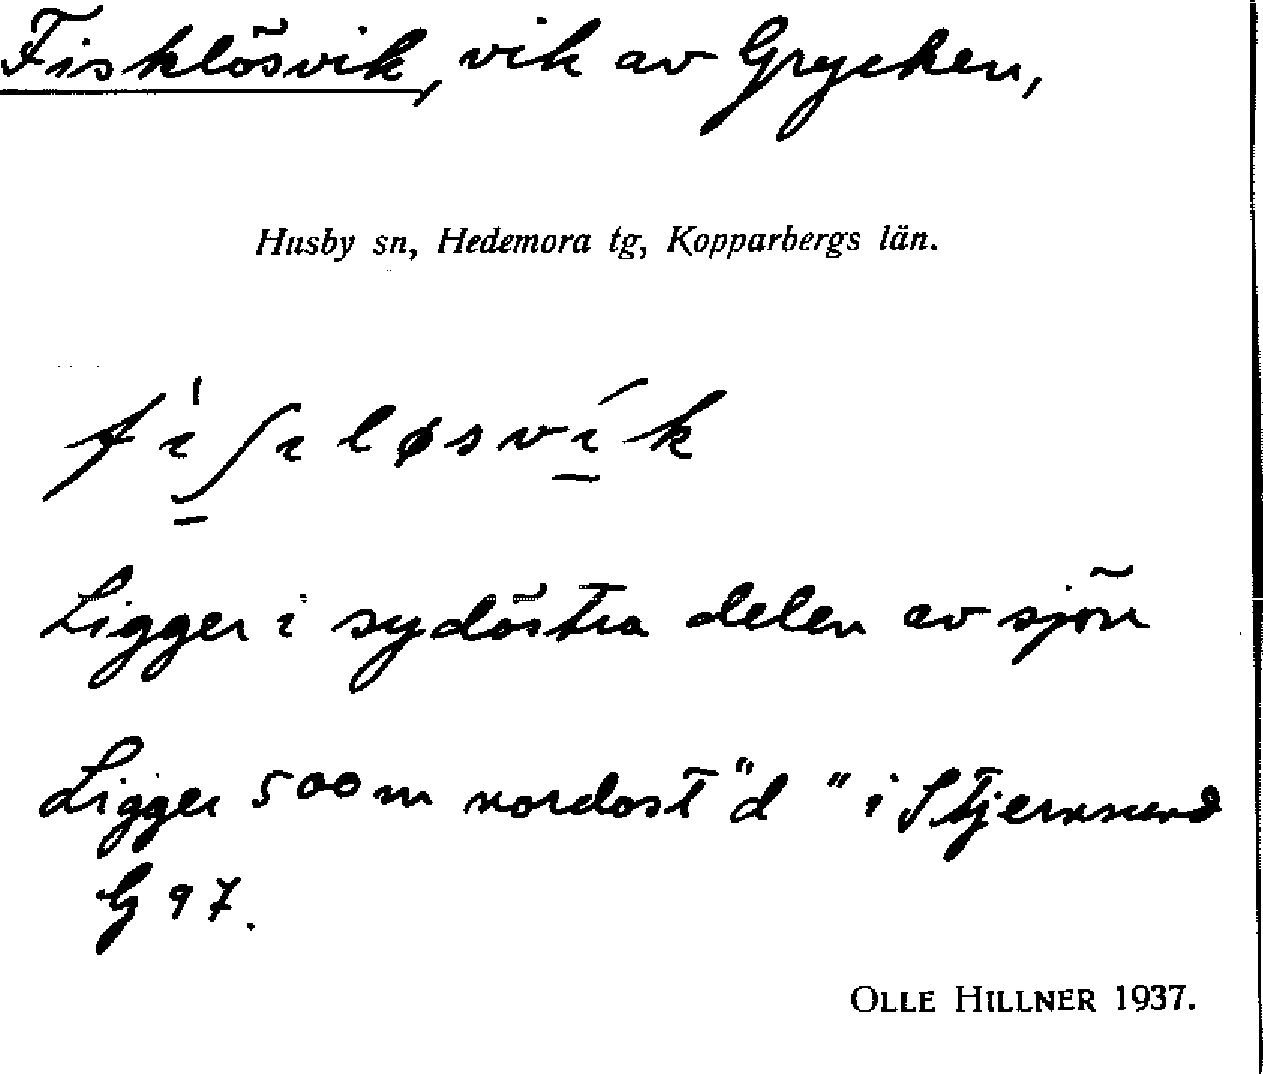 Fisklösvik, vik av Grycken,
Husby sn, Hedemora tg, Kopparbergs län.
Ligger i sydöstra delen av sjön
Ligger 500 m nordost "d" i Stjernsund
G 97.
OLLE HILLNER 1937.